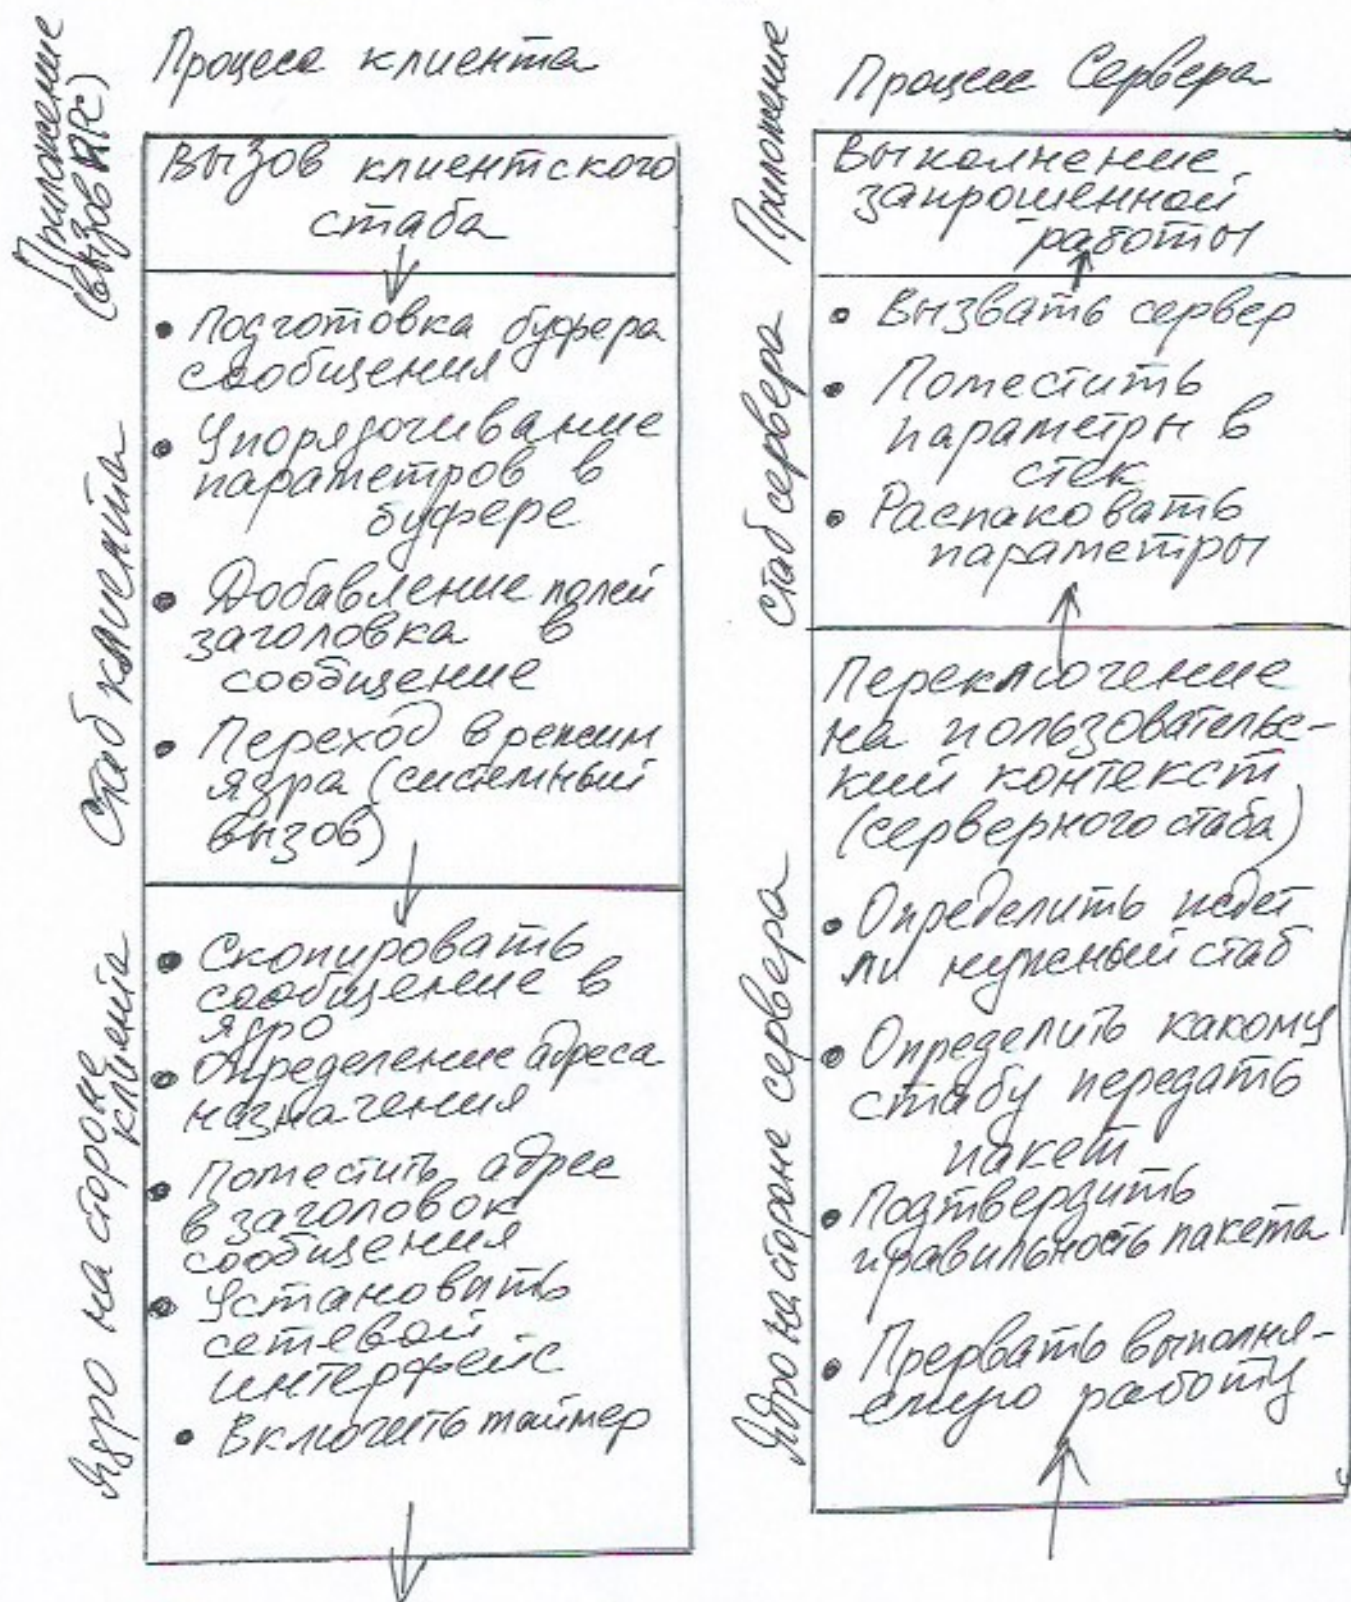 Приложение
(вызов RPC)
Процесс клиента
Вызов клиентского
стаба
Стаб клиента
• Подготовка буфера
сообщения
• Упорядочивание
параметров в
буфере
• Добавление полей
заголовка в
сообщение
• Переход в режим
ядра (системный
вызов)
Ядро на стороне
клиента
• Скопировать
сообщение в
ядро
• Определение адреса
назначения
• Поместить адрес
в заголовок
сообщения
• Установить
сетевой
интерфейс
• Включить таймер
Приложение
Процесс Сервера
Выполнение
запрошенной
работы
стаб сервера
• Вызвать сервер
• Поместить
параметры в
стек
• Распаковать
параметры
Ядро на стороне сервера
Переключение
на пользователь-
кий контекст
(серверного стаба)
• Определить ждет
ли нужный стаб
• Определить какому
стабу передать
пакет
• Подтвердить
правильность пакета
• Прервать выполня-
емую работу